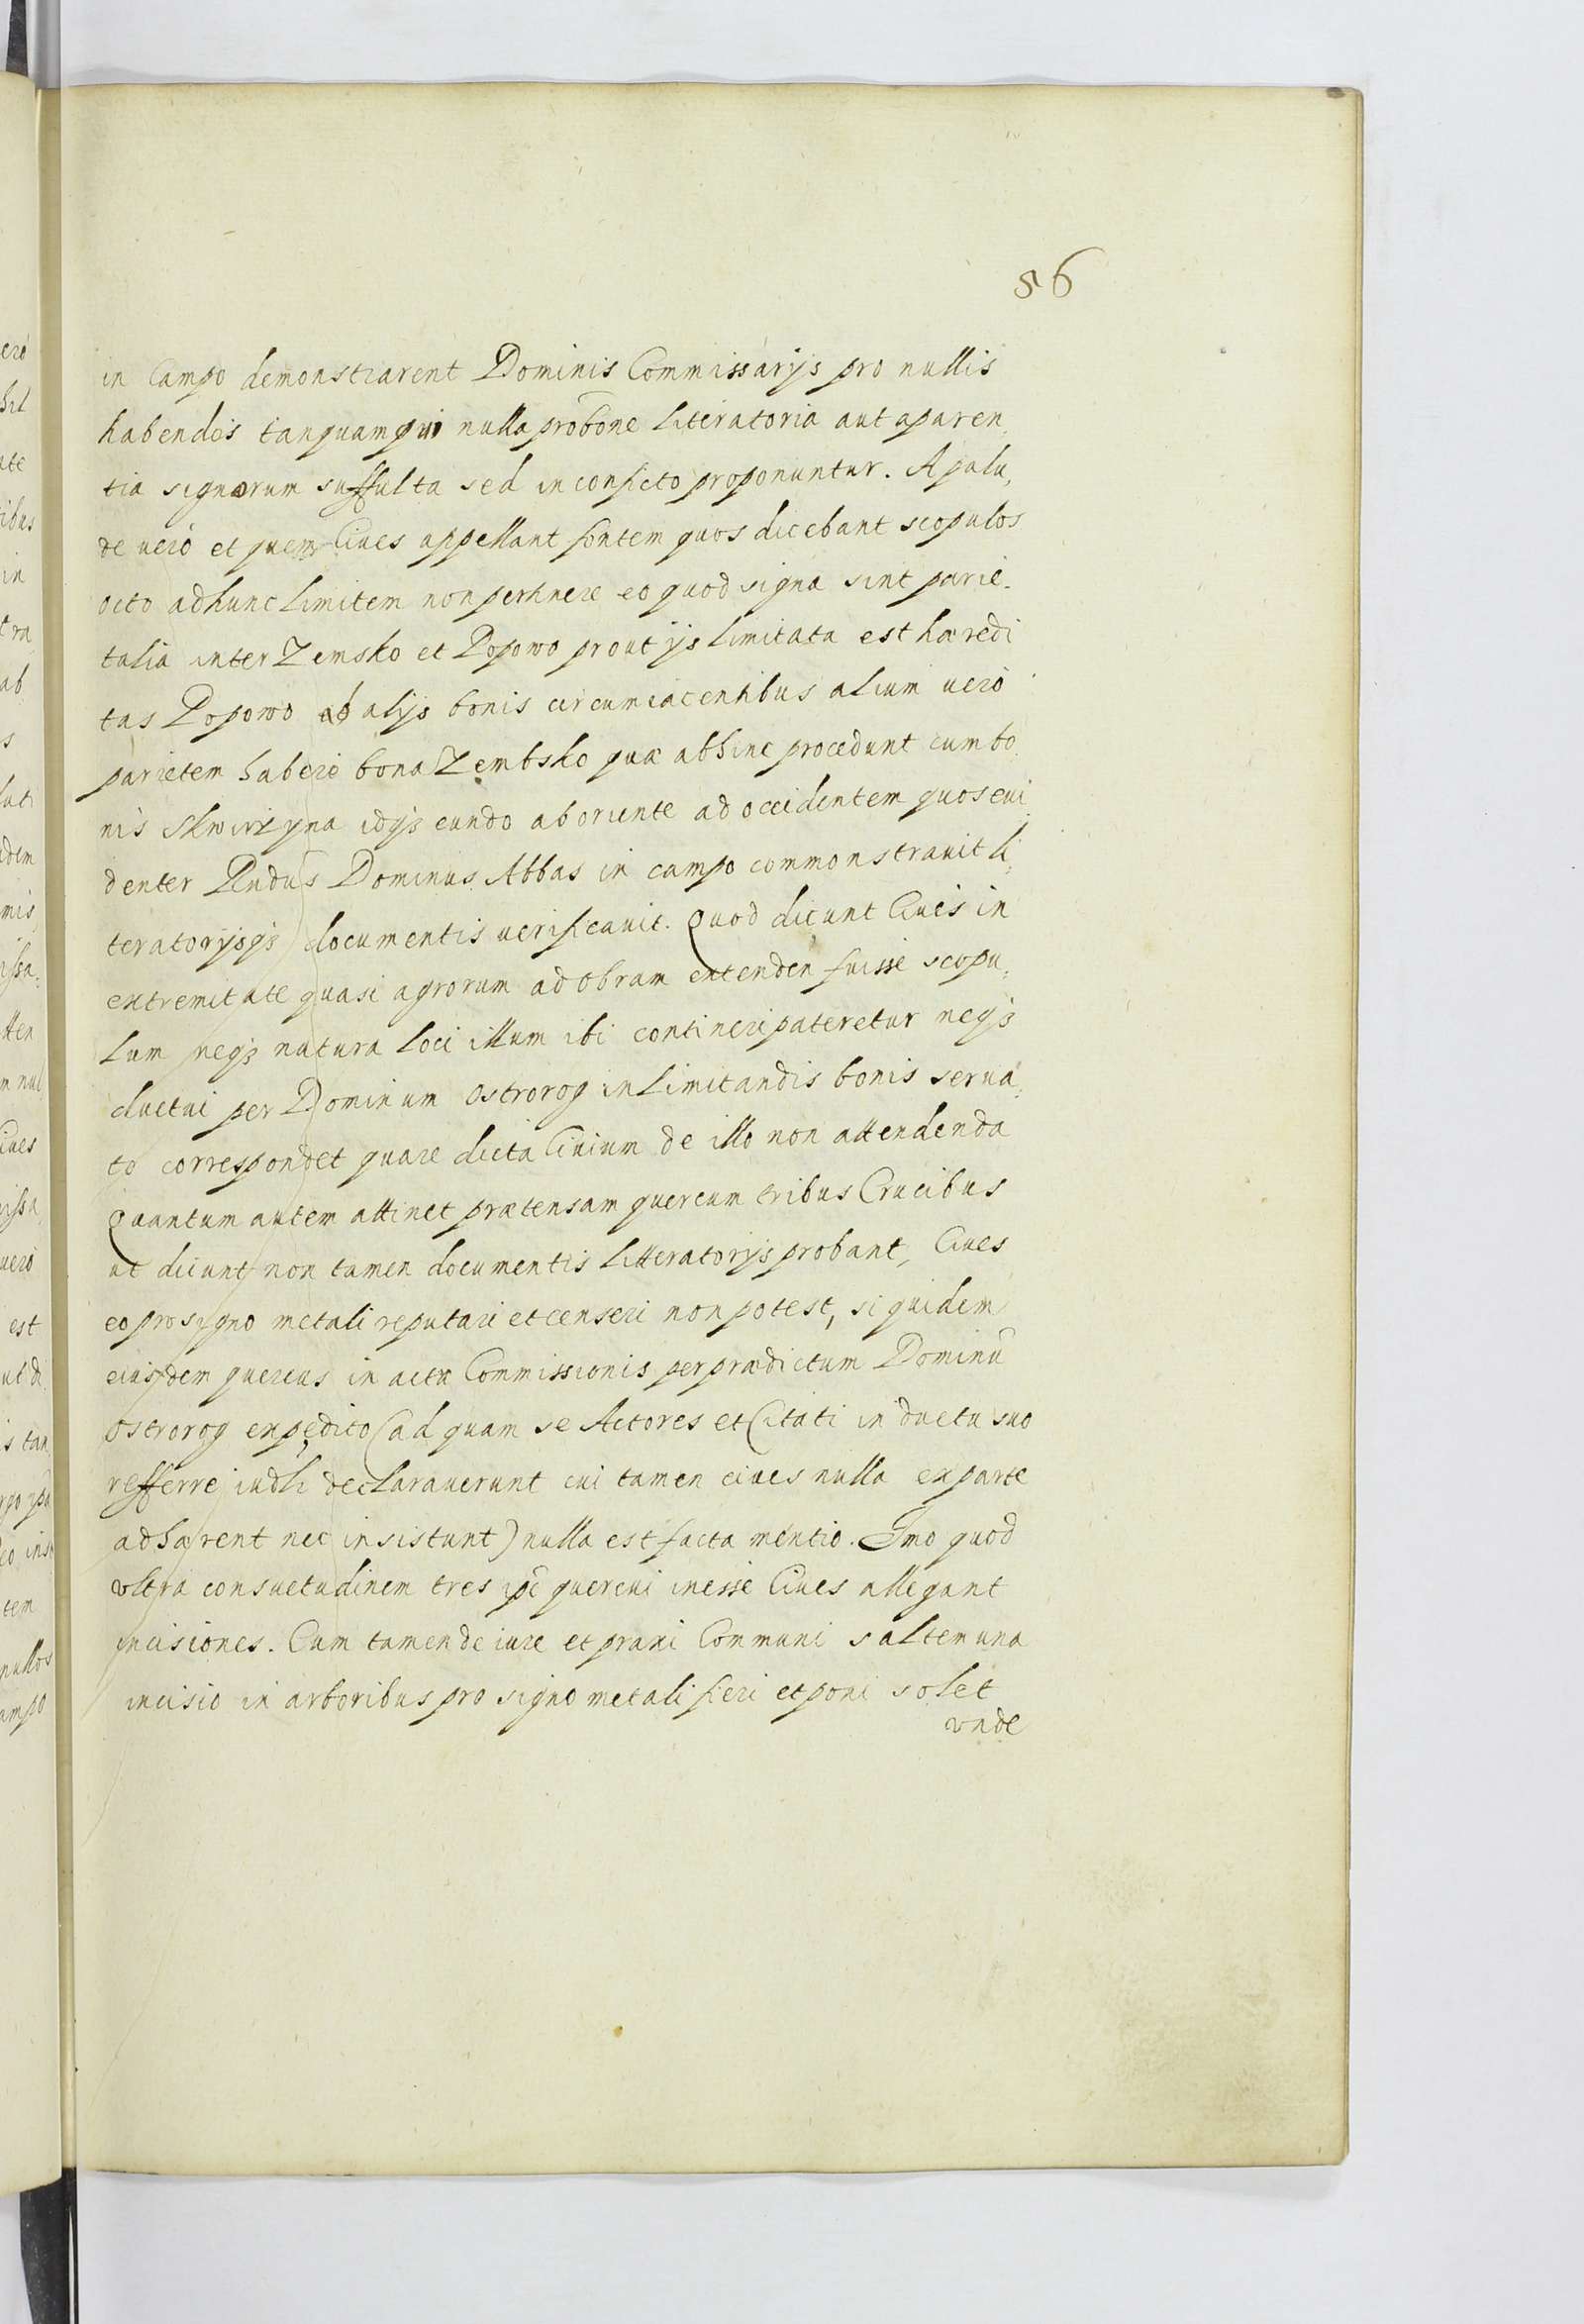 56
in Campo demonstrarent Dominis Commissarijs pro nullis
habendos tanquam qui nulla probõne literatoria aut aparen,
tia signorum suffulta sed in conficto proponuntur. A palu,
de uerò et quem Ciues appellant fontem quos dicebant scopulos
octo ad hunc limitem non pertinere eo quod signa sint parie.
talia inter Zemsko et Popowo prout ijs limitata est hæredi
tas Popowo ab alijs bonis circumiacentibus alium uerò
parietem habere bona Zembsko quæ abhinc procedunt cum bo
nis Skwirzyna idq3 eundo ab oriente ad occidentem quos eui
denter Rndus Dominus Abbas in campo commonstrauit li,
teratorijsq3 documentis uerificauit. Quod dicunt Ciues in
extremitate quasi agrorum ad obram extenden fuisse scopu,
lum neq3 natura loci illum ibi contineri pateretur neq3
ductui per Dominum Ostrorog in limitandis bonis serua,
to correspondet quare dicta Ciuium de illo non attendenda
Quantum autem attinet prætensam quercum tribus Crucibus
ut dicunt non tamen documentis litteratorijs probant, Ciues
eo pro signo metali reputari et censeri non potest, siquidem
eiusdem quercus in actu Commissionis per prædictum Dominũ
Ostrorog expedito (ad quam se Actores et Citati in ductu suo
refferre iudli declarauerunt cui tamen ciues nulla ex parte
adhærent nec insistunt) nulla est facta mentio. Imo quod
vltra consuetudinem tres ipĩ quercui inesse Ciues allegant
incisiones. Cum tamen de iure et praxi Communi saltem una
incisio in arboribus pro signo metali fieri et poni solet
vnde